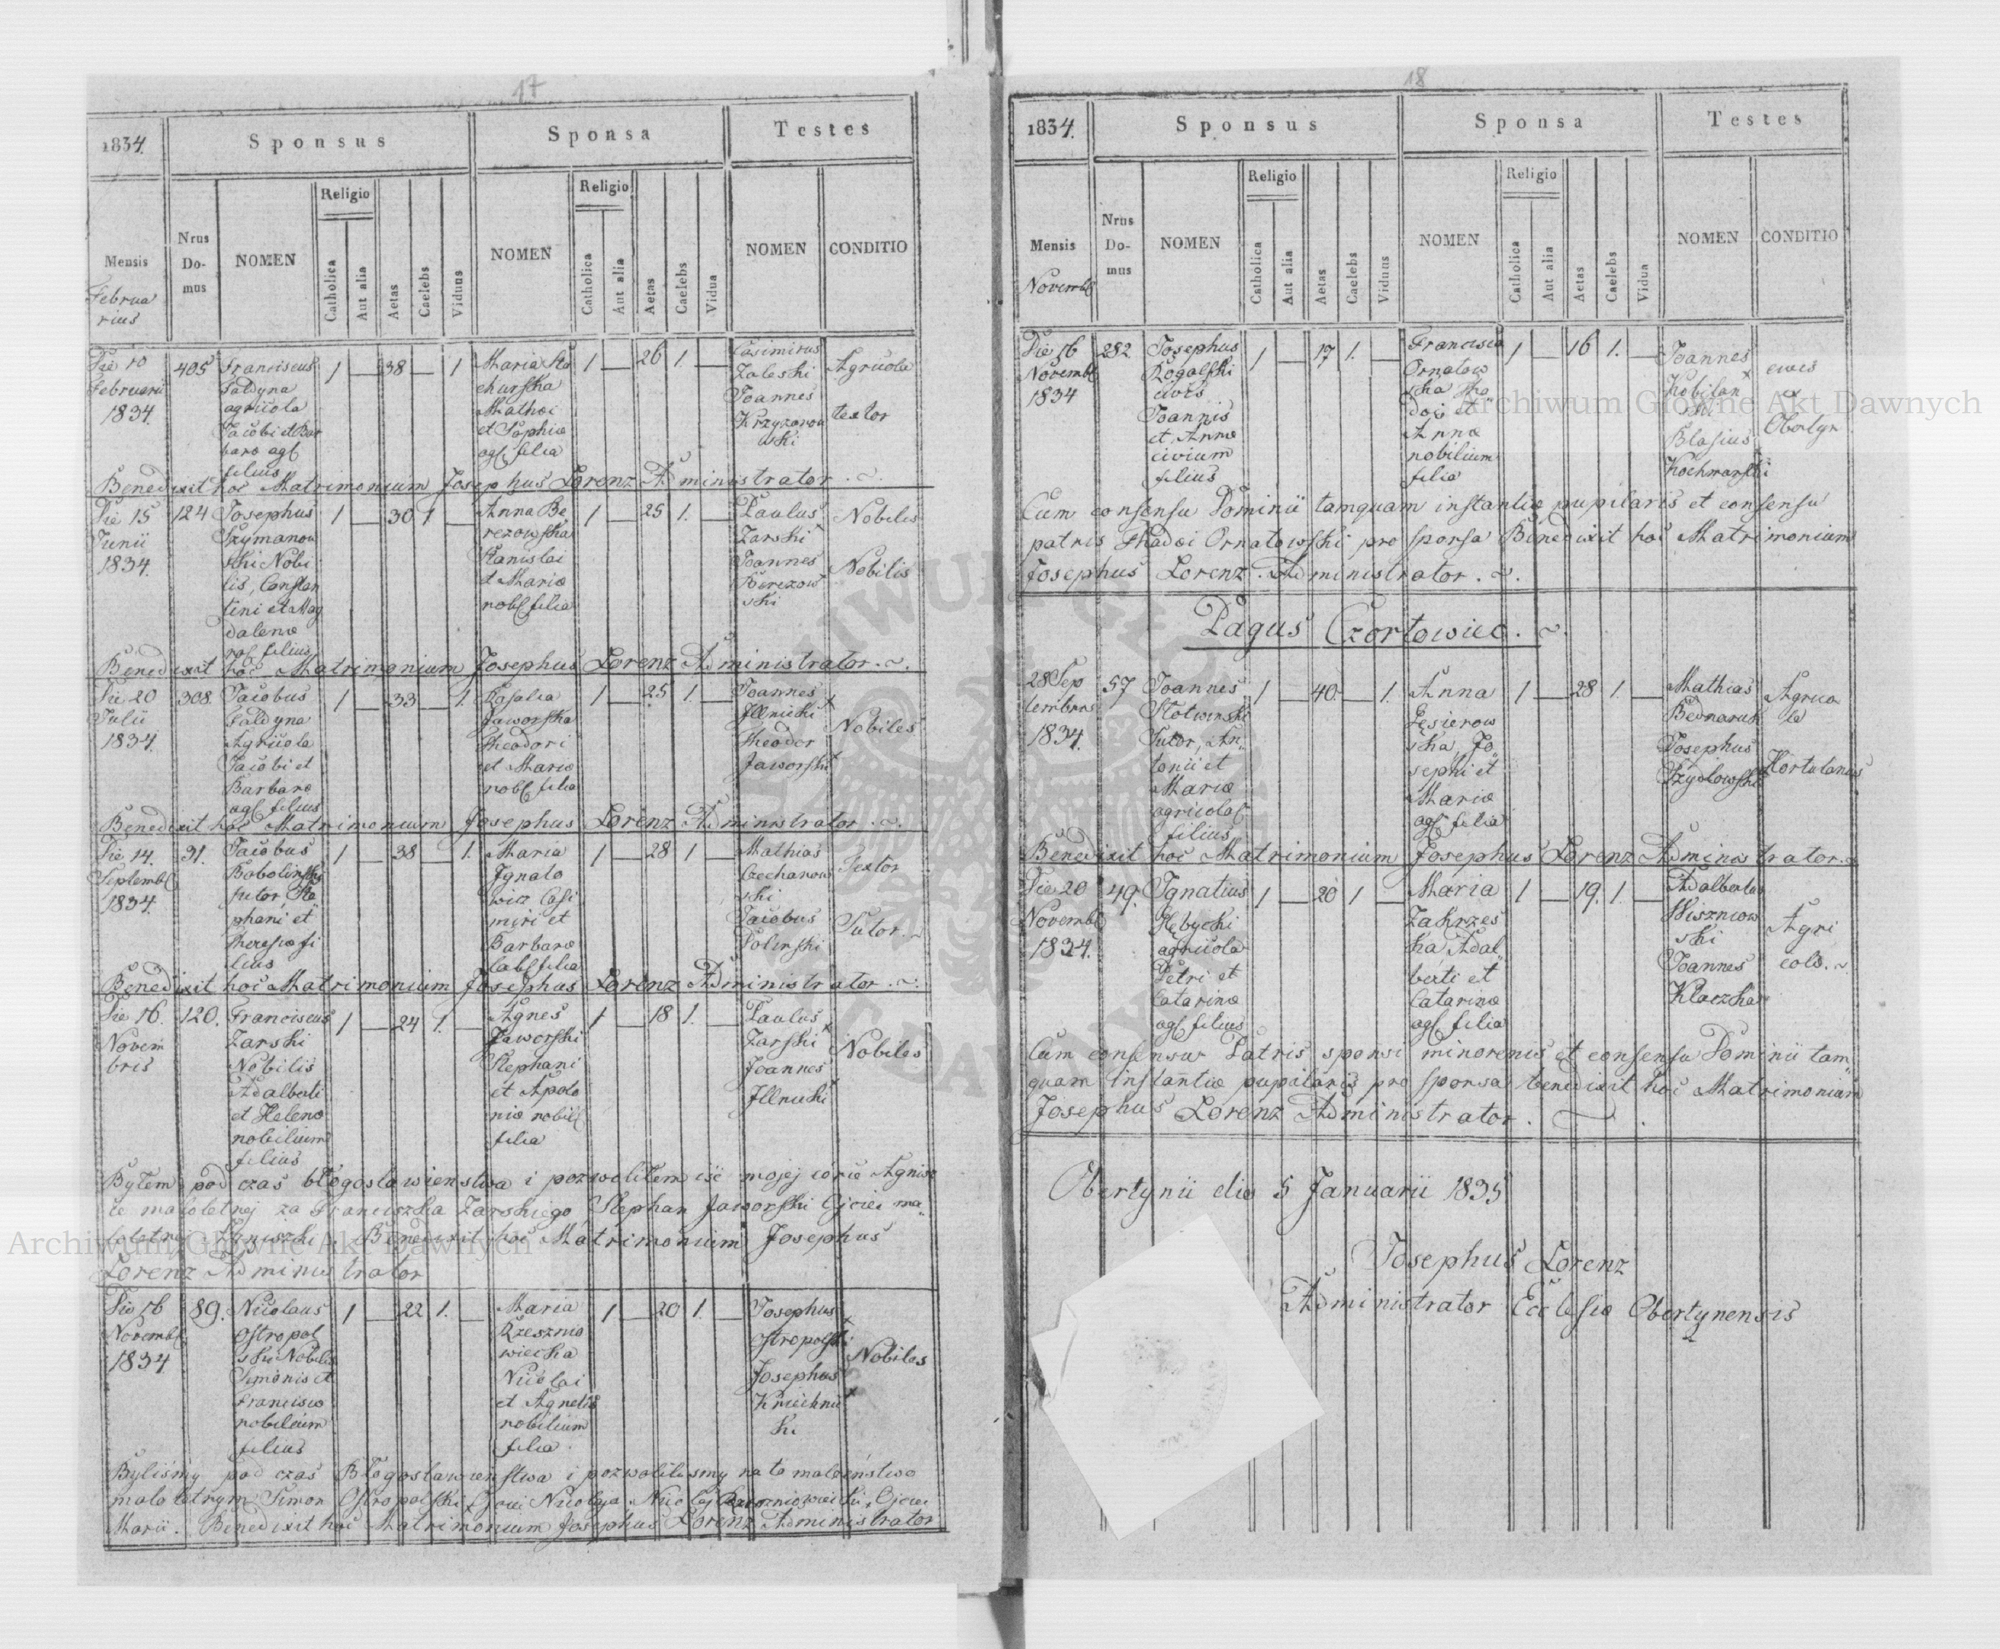 17
1834.
Sponsus
Sponsa
Testes
Mensis
Februa
rius
Nrus
Do-
mus
NOMEN
Religio
Catholica
Aut alia
Aetas
Caelebs
Viduus
NOMEN
Religio
Catholica
Aut alia
Aetas
Caelebs
Vidua
NOMEN
CONDITIO
Die 10
Februarii
1834.
405
Franciscus
Faldyna
agricola
Jacobi et Bar
bara agl
filius
1 — 38 — 1
Maria
Mathæi
et Sophiæ
agl filia
1 — 26 1. —
Casimirus
Zaleski
Joannes
Agricola
textor
Benedixit hoc Matrimonium Josephus Lorenz Administrator
Die 15
Junii
1834.
124
Josephus
Szymanow
ski Nobi
lis, Constan
tini et Mag
dalenæ
filius
1 — 30 1 —
Anna Be
rezowska
Stanislai
et Mariæ
nobl filia
1 — 25 1. —
Paulus
Zarski
Joannes
Berezow
ski
Nobilis
Nobilis
Benedixit hoc Matrimonium Josephus Lorenz Administrator
Die 20
Julii
1834.
308.
Jacobus
Faldyna
Agricola
Jacobi et
Barbaræ
agl filius
1 — 33 — 1.
Rosalia
Jaworska
Theodori
et Mariæ
nobl filia
1 — 25 1. —
Joannes
Illnicki
Theodor
Jaworski
Nobiles
Benedixit hoc Matrimonium Josephus Lorenz Administrator
Die 14.
Septembl
1834.
31.
Jacobus
Bobolinski
sutor Ste
phani et
Theresiæ fi
lius
1 — 38 — 1.
Maria
Ignato
wicz Casi
miri et
Barbaræ
filia
1 — 28 1 —
Mathias
Czechanow
ski
Jacobus
Polinski
Textor
Sutor.
Benedixit hoc Matrimonium Josephus Lorenz Administrator
Die 16.
Novem
bris
120.
Franciscus
Zarski
Nobilis
Adalberti
et Helenæ
nobilium
filius
1 — 24 1. —
Agnes
Jaworski
Stephani
et Apolo
niæ nobil
filia
1 — 18 1. —
Paulus
Zarski
Joannes
Illnicki
Nobiles
Byłem pod czas błogosławienstwa i pozwoliłem isć mojej corce Agnisz
ce małoletnej za Franciszka Zarskiego, Stephan Jaworski Ojciec ma-
loletnej Benedixit hoc Matrimonium Josephus
Lorenz Administrator
Die 16
Novembl
1834
89.
Nicolaus
Ostropol
ski Nobilis
Simonis et
Franciscæ
nobilium
filius
1 — 22 1. —
Maria
Rzesznio
wiecka
Nicolai
et Agnetis
nobilium
filia.
1 — 20 1. —
Josephus
Ostropolski
Josephus
Kniehnic
ki
Nobiles
Byliśmy pod czas Błogosławienstwa i pozwolilismy na to małżeństwo
małoletnym Simon Ostropolski Ojciec Nicolaja. Nicolaj Ojciec
Marii. Benedixit hoc Matrimonium Josephus Lorenz Administrator
18
1834.
Sponsus
Sponsa
Testes
Mensis
Novembl
Nrus
Do-
mus
NOMEN
Religio
Catholica
Aut alia
Aetas
Caelebs
Viduus
NOMEN
Religio
Catholica
Aut alia
Aetas
Caelebs
Vidua
NOMEN
CONDITIO
Die 16
Novembl
1834
282
Josephus
Rogalski
civis
Joannis
et Annæ
civium
filius
1 — 17 1. —
Francisca
Ornatow
ska Tha
dæi et
Annæ
nobilium
filia
1 — 16 1. —
Joannes
Kobilan
ski
Blasius
Kochmarski
cives
ex
Obertyn
Cum consensu Dominii tamquam instantiæ pupilaris et consensu
patris Thadæi Ornatowski pro sponsa Benedixit hoc Matrimonium
Josephus Lorenz Administrator.
Pagus Czortowiec.
28 Sep
tembris
1834.
57
Joannes
Slotwinski
Sutor, An
tonii et
Mariæ
agricolal
filius
1 — 40 — 1.
Anna
Gęsierow
ska, Jo
sephi et
Mariæ
agl filia
1 — 28 1. —
Mathias
Bednaruk
Josephus
Szydlowski
Agrico
la
Hortulanus
Benedixit hoc Matrimonium Josephus Lorenz Administrator.
Die 20
Novembl
1834.
49.
Ignatius
agricola
Petri et
Catarinæ
agl filius
1 — 20 1 —
Maria
Zakrzes
ka Adal
berti et
Catarinæ
agl filia
1 — 19. 1. —
Adalbertus
Wiszniow
ski
Joannes
Klaczka
Agri
colæ.
Cum consensu Patris sponsi minorenis et consensu Dominii tam
quam instantiæ pupilaris pro sponsa benedixit hoc Matrimonium
Josephus Lorenz Administrator.
Obertynii die 5 Januarii 1835
Josephus Lorenz
Administrator Ecclesiæ Obertynensis
Archiwum Główne Akt Dawnych
Archiwum Główne Akt Dawnych